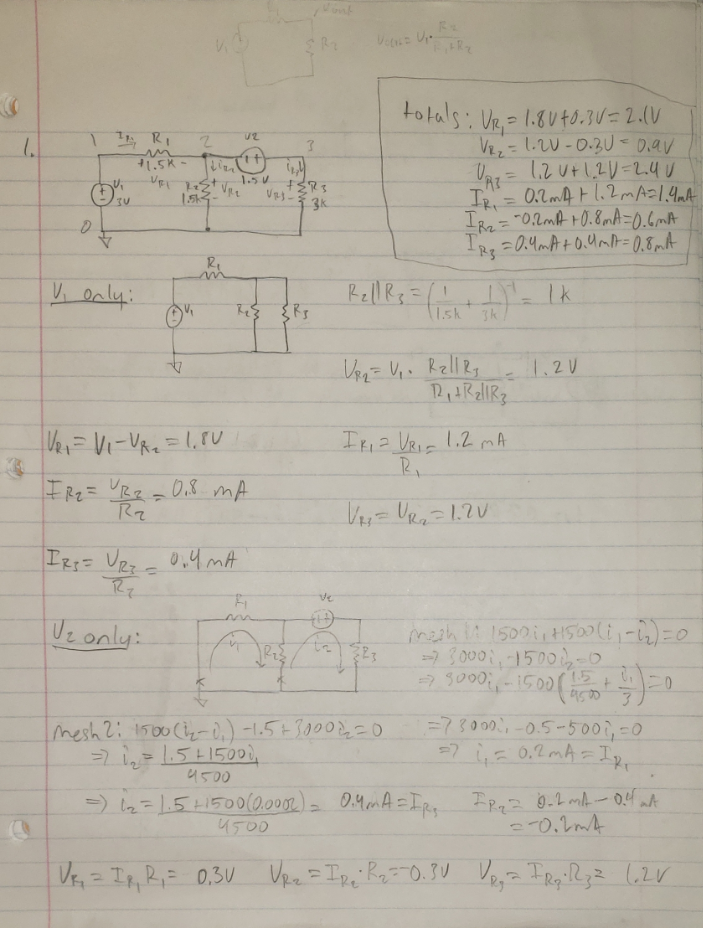 R1 Vout
V1 R2 Vout = V1 · R2/(R1+R2)
totals: VR1 = 1.8V+0.3V = 2.1V
VR2 = 1.2V - 0.3V = 0.9V
VR3 = 1.2V+1.2V = 2.4V
IR1 = 0.2mA + 1.2mA = 1.4mA
IR2 = -0.2mA + 0.8mA = 0.6mA
IR3 = 0.4mA + 0.4mA = 0.8mA
1. 1 IR1 R1 2 V2 3
+ 1.5K - iR2 1.5V iR3
V1 3V VR1 R2 1.5K + VR2 - VR3 + - R3 3K
0
V1 only: R1 V1 R2 R3
R2||R3 = (1/1.5k + 1/3k)^-1 = 1k
VR2 = V1 · R2||R3/(R1+R2||R3) = 1.2V
VR1 = V1 - VR2 = 1.8V
IR1 = VR1/R1 = 1.2 mA
IR2 = VR2/R2 = 0.8 mA
VR3 = VR2 = 1.2V
IR3 = VR3/R3 = 0.4mA
V2 only: R1 V2 i1 R2 i2 R3
mesh 1: 1500i1+1500(i1-i2)=0
=> 3000i1-1500i2=0
=> 3000i1-1500(1.5/4500 + i1/3)=0
mesh 2: 1500(i2-i1)-1.5+3000i2=0
=> 3000i1-0.5-500i1=0
=> i2 = (1.5+1500i1)/4500
=> i1 = 0.2mA = IR1
=> i2 = (1.5+1500(0.0002))/4500 = 0.4mA = IR3
IR2 = 0.2mA - 0.4mA
= -0.2mA
VR1 = IR1R1 = 0.3V VR2 = IR2·R2 = -0.3V VR3 = IR3·R3 = 1.2V